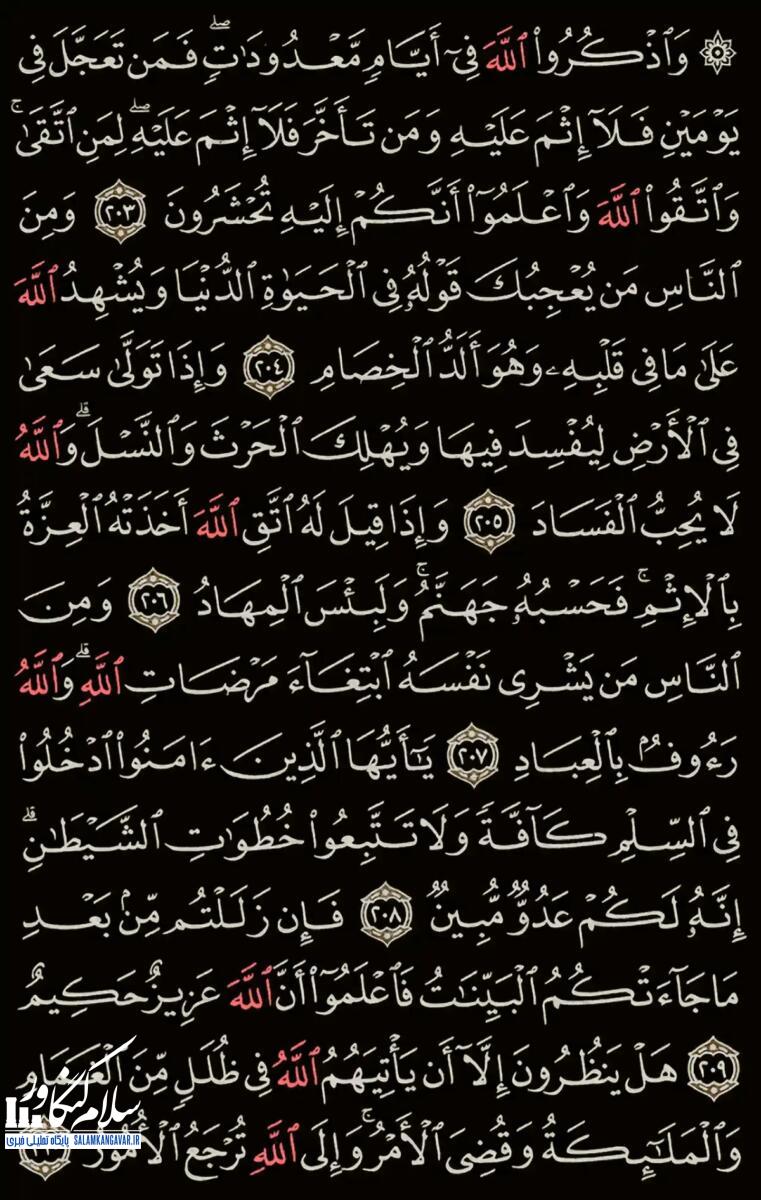 ۞ وَٱذۡكُرُواْ ٱللَّهَ فِيٓ أَيَّامٖ مَّعۡدُودَٰتٖۚ فَمَن تَعَجَّلَ فِي
يَوۡمَيۡنِ فَلَآ إِثۡمَ عَلَيۡهِ وَمَن تَأَخَّرَ فَلَآ إِثۡمَ عَلَيۡهِۖ لِمَنِ ٱتَّقَىٰۚ
وَٱتَّقُواْ ٱللَّهَ وَٱعۡلَمُوٓاْ أَنَّكُمۡ إِلَيۡهِ تُحۡشَرُونَ ٢٠٣ وَمِنَ
ٱلنَّاسِ مَن يُعۡجِبُكَ قَوۡلُهُۥ فِي ٱلۡحَيَوٰةِ ٱلدُّنۡيَا وَيُشۡهِدُ ٱللَّهَ
عَلَىٰ مَا فِي قَلۡبِهِۦ وَهُوَ أَلَدُّ ٱلۡخِصَامِ ٢٠٤ وَإِذَا تَوَلَّىٰ سَعَىٰ
فِي ٱلۡأَرۡضِ لِيُفۡسِدَ فِيهَا وَيُهۡلِكَ ٱلۡحَرۡثَ وَٱلنَّسۡلَۚ وَٱللَّهُ
لَا يُحِبُّ ٱلۡفَسَادَ ٢٠٥ وَإِذَا قِيلَ لَهُ ٱتَّقِ ٱللَّهَ أَخَذَتۡهُ ٱلۡعِزَّةُ
بِٱلۡإِثۡمِۚ فَحَسۡبُهُۥ جَهَنَّمُۚ وَلَبِئۡسَ ٱلۡمِهَادُ ٢٠٦ وَمِنَ
ٱلنَّاسِ مَن يَشۡرِي نَفۡسَهُ ٱبۡتِغَآءَ مَرۡضَاتِ ٱللَّهِۚ وَٱللَّهُ
رَءُوفُۢ بِٱلۡعِبَادِ ٢٠٧ يَٰٓأَيُّهَا ٱلَّذِينَ ءَامَنُواْ ٱدۡخُلُواْ
فِي ٱلسِّلۡمِ كَآفَّةٗ وَلَا تَتَّبِعُواْ خُطُوَٰتِ ٱلشَّيۡطَٰنِۚ
إِنَّهُۥ لَكُمۡ عَدُوّٞ مُّبِينٞ ٢٠٨ فَإِن زَلَلۡتُم مِّنۢ بَعۡدِ
مَا جَآءَتۡكُمُ ٱلۡبَيِّنَٰتُ فَٱعۡلَمُوٓاْ أَنَّ ٱللَّهَ عَزِيزٌ حَكِيمٌ
٢٠٩ هَلۡ يَنظُرُونَ إِلَّآ أَن يَأۡتِيَهُمُ ٱللَّهُ فِي ظُلَلٖ مِّنَ ٱلۡغَمَامِ
وَٱلۡمَلَٰٓئِكَةُ وَقُضِيَ ٱلۡأَمۡرُۚ وَإِلَى ٱللَّهِ تُرۡجَعُ ٱلۡأُمُورُ
سلام کنگاور
پایگاه تحلیلی خبری SALAMKANGAVAR.IR